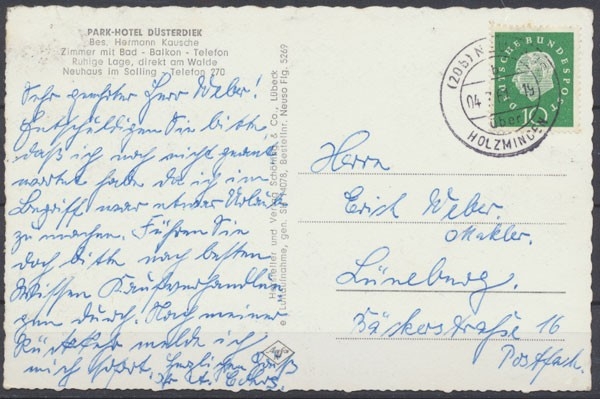 PARK-HOTEL DÜSTERDIEK
Bes. Hermann Kausche
Zimmer mit Bad - Balkon - Telefon
Ruhige Lage, direkt am Walde
Neuhaus im Solling - Telefon 270
Sehr geehrter Herr Weber!
Entschuldigen Sie bitte,
daß ich noch nicht geant-
wortet habe da ich im
Begriff war etwas Urlaub
zu machen. Führen Sie
doch bitte nach bestem
Wissen Kaufverhandlun-
gen durch. Nach meiner
Rückkehr melde ich
mich sofort. Herzlichen Gruß
Ihr
Hersteller und Verlag Schöning & Co., Lübeck
Luftaufnahme, gen. Bestellnr. Neuso Flg. 5269
DEUTSCHE BUNDESPOST
10
(20b) N
über
HOLZMINDEN
Herrn
Erich Weber.
Makler.
Lüneburg.
Bäckerstraße 16
Postfach.